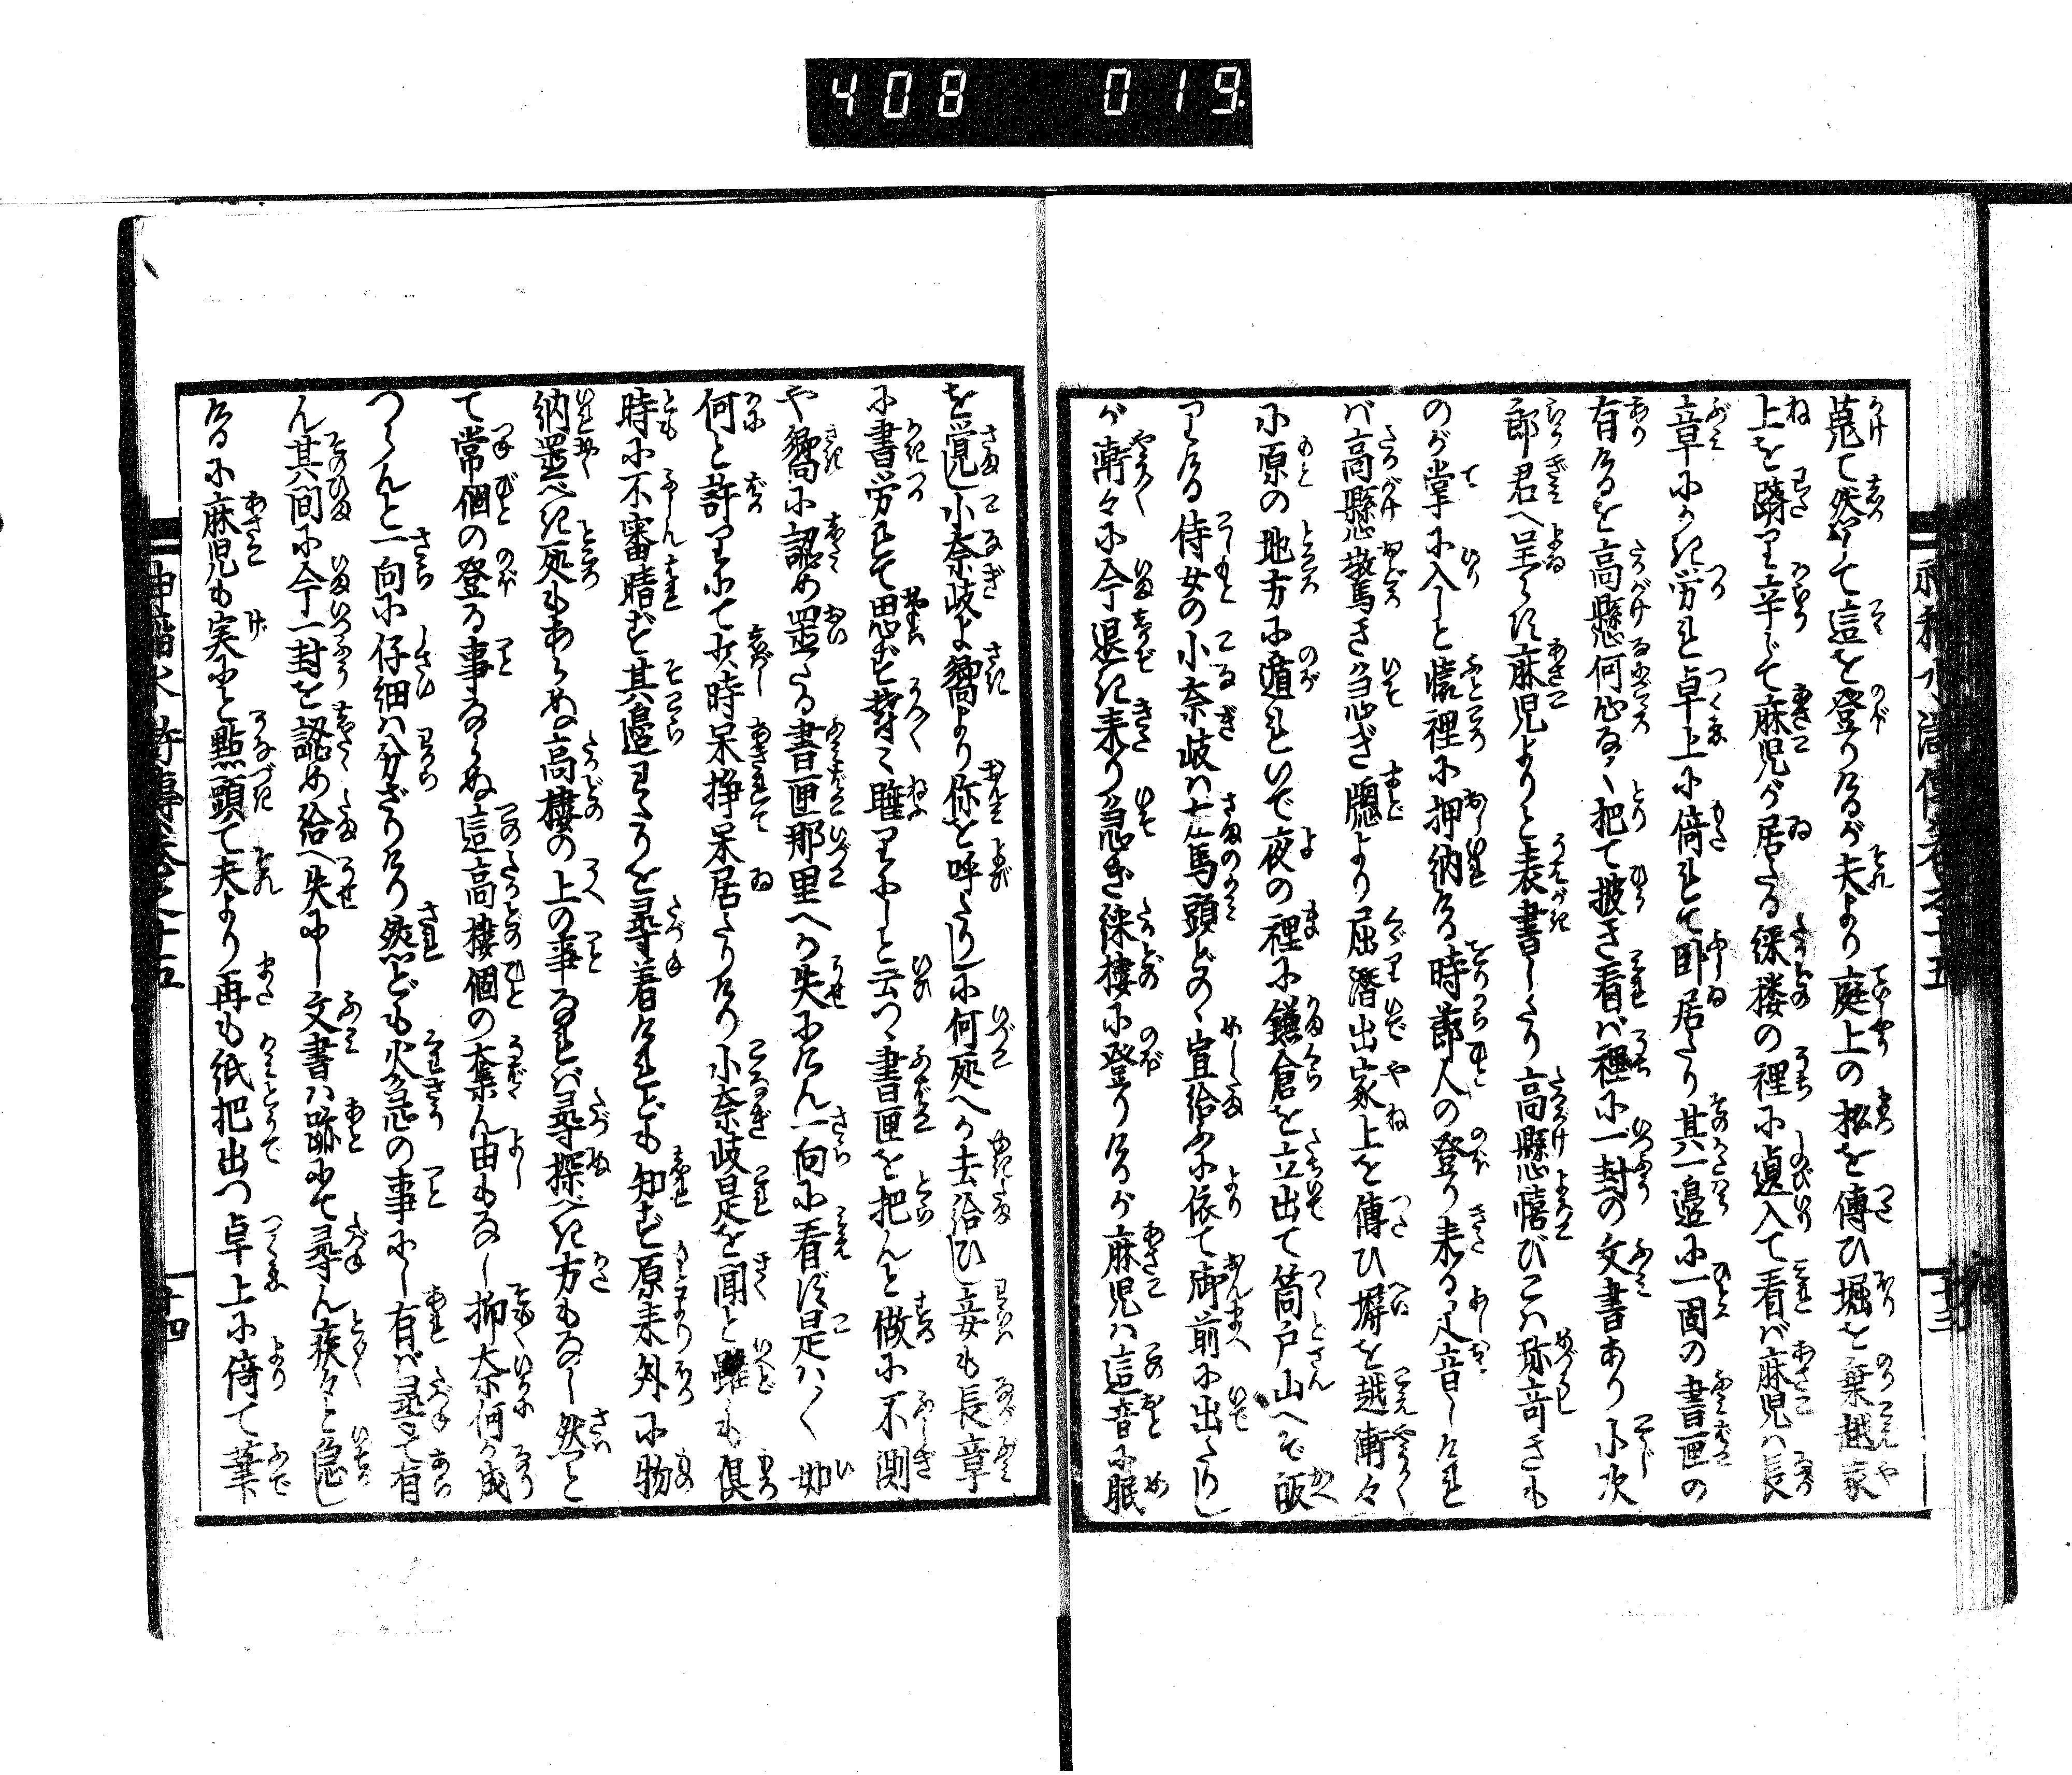 408 019
蒐て然り氣て這を登りけるが夫より庭上の松を傳ひ堀を乗越家
上を躋り辛じて麻児が居たる綵楼の裡に邉入て看ば麻児ハ長
章にかき労れ卓上に倚れて臥居たり其邉に一固の書匣の
有けるを高懸何心なく把て披き看バ裡に一封の文書あり小次
郎君へ呈らす麻児よりと表書したり高懸慥びこハ珎奇きも
のが掌に入しと懐裡に押納ける時節人の登り来る足音しけれ
バ高懸驚き急ぎ牕より屈潜出家上を傳ひ塀を越漸々
に原の地方に遁れいで夜の裡に鎌倉を立出て筒戸山へぞ皈
りける侍女の小奈岐ハ左馬頭どのゝ宣給ふに依て御前に出たりし
が漸々に今退き来り急ぎ綵樓に登りけるが麻児ハ這音に眠
を覚し小奈岐よ嚮より你を呼たりしに何処へか去給ひし妾も長章
に書労れて思ず暫く睡りにしと云つゝ書匣を把んと做に不測
や嚮に認め置たる書匣那里へか失にけん一向に看ず是ハく如
何と許りにて少時呆掙呆居たりけり小奈岐是を聞と雖も倶
時に不審晴ず其邉りを尋着けれども知ず原来外に物
納置べき処もあらぬ高樓の上の事なれバ尋探べき方もなし然と
て常個の登る事ならぬ這高樓個の奪ん由もなし抑奈何か成
つらんと一向に仔細ハ分ざりけり然ども火急の事にし有バ尋て有
ん其間に今一封を認め給へ失にし文書ハ跡にて尋ん疾々と急し
けるに麻児も実にと點頭て夫より再も紙把出つ卓上に倚て筆下
十四